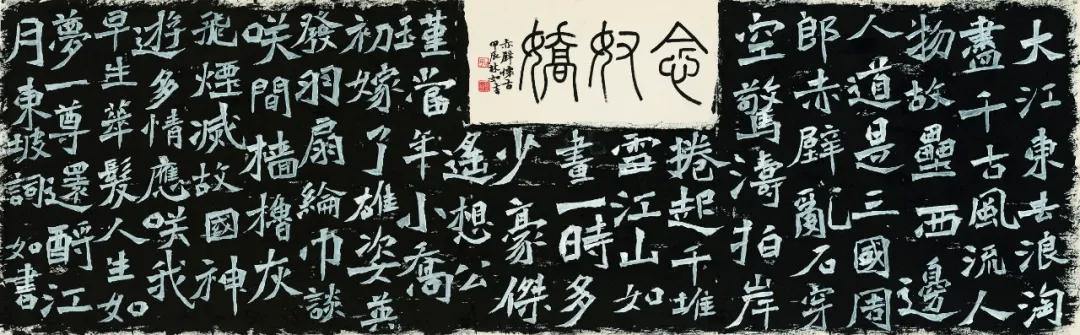 念奴嬌
赤壁懷古
甲辰
大江東去浪淘
盡千古風流人
物故壘西邊
人道是三國周
郎赤壁亂石穿
空驚濤拍岸
捲起千堆
雪江山如
畫一時多
少豪傑
遙想公
瑾當年小喬
初嫁了雄姿英
發羽扇綸巾談
咲間檣櫓灰
飛煙滅故國神
遊多情應咲我
早生華髮人生如
夢一尊還酹江
月東坡詞如書